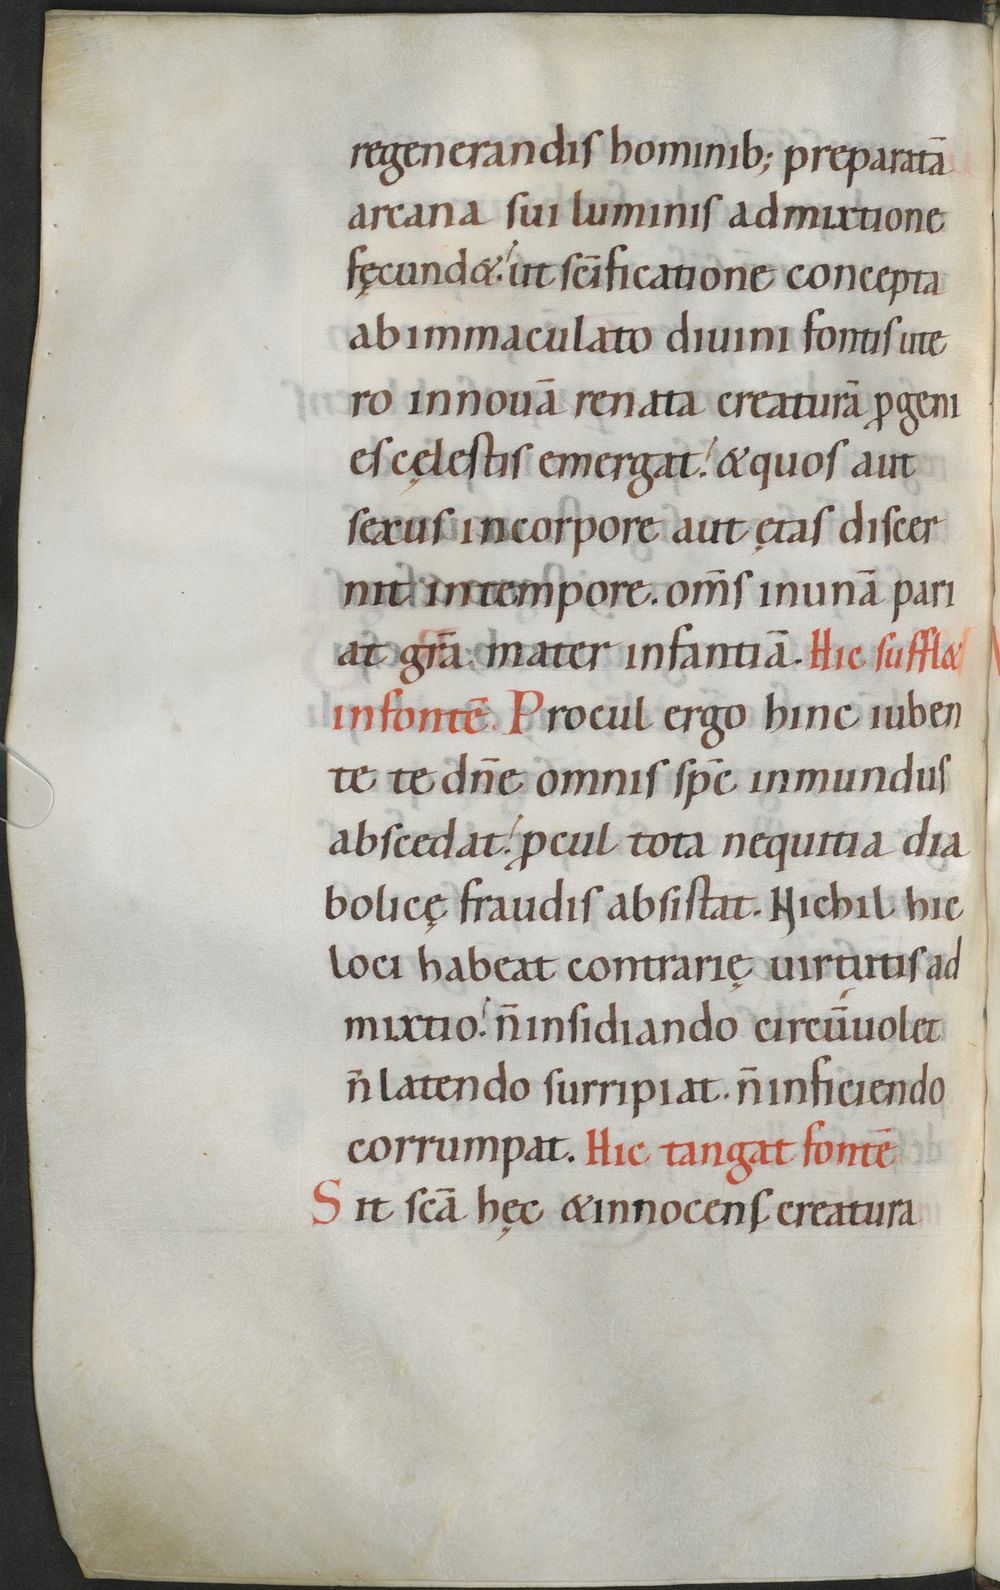 regenerandis hominib; preparatā
arcana sui luminis admixtione
fęcund&. ut scīficatione concepta
ab immaculato diuini fontis ute
ro in nouā renata creaturā ꝓgeni
es cęlestis emergat. & quos aut
sexus in corpore aut ętas discer
nit in tempore. om̄s in unā pari
at gr̄a mater infantiā. Hic suffl&
in fontē. Procul ergo hinc iuben
te te dn̄e omnis sp̄c inmundus
abscedat. ꝓcul tota nequitia dia
bolicę fraudis absistat. Nichil hic
loci habeat contrarię uirtutis ad
mixtio. n̄ insidiando circūuolet
n̄ latendo surripiat. n̄ inficiendo
corrumpat. Hic tangat fontē
Sit scā hęc & innocens creatura